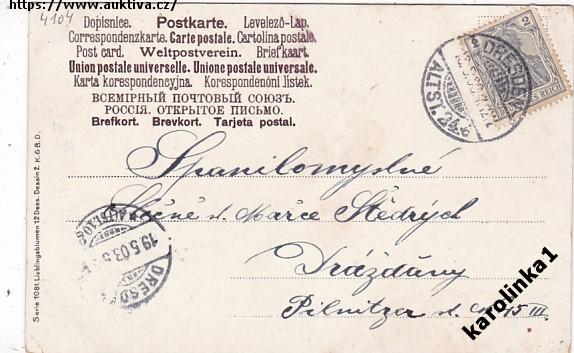 https://www.auktiva.cz/
4104
Dopisnice. Postkarte. Levelező-Lap.
Correspondenzkarte. Carte postale. Cartolina postale.
Post card. Weltpostverein. Brief kaart.
Union postale universelle. Unione postale universale.
Karta korespondencyjna. Korespondenční lístek.
ВСЕМІРНЫЙ ПОЧТОВЫЙ СОЮЗЪ.
РОССІЯ. ОТКРЫТОЕ ПИСЬМО.
Brefkort. Brevkort. Tarjeta postal.
2
REICH
DRESDEN
ALTST. 24
Spanilomyslné
Slečně sl. Mařce Štědrých
Drážďany
Pilnitzer st. 15 III.
19.5.03.
DRESD
Serie 1081. Lieblingsblumen 12 Dess. Dessin 2. K. & B. D.
karolinka1